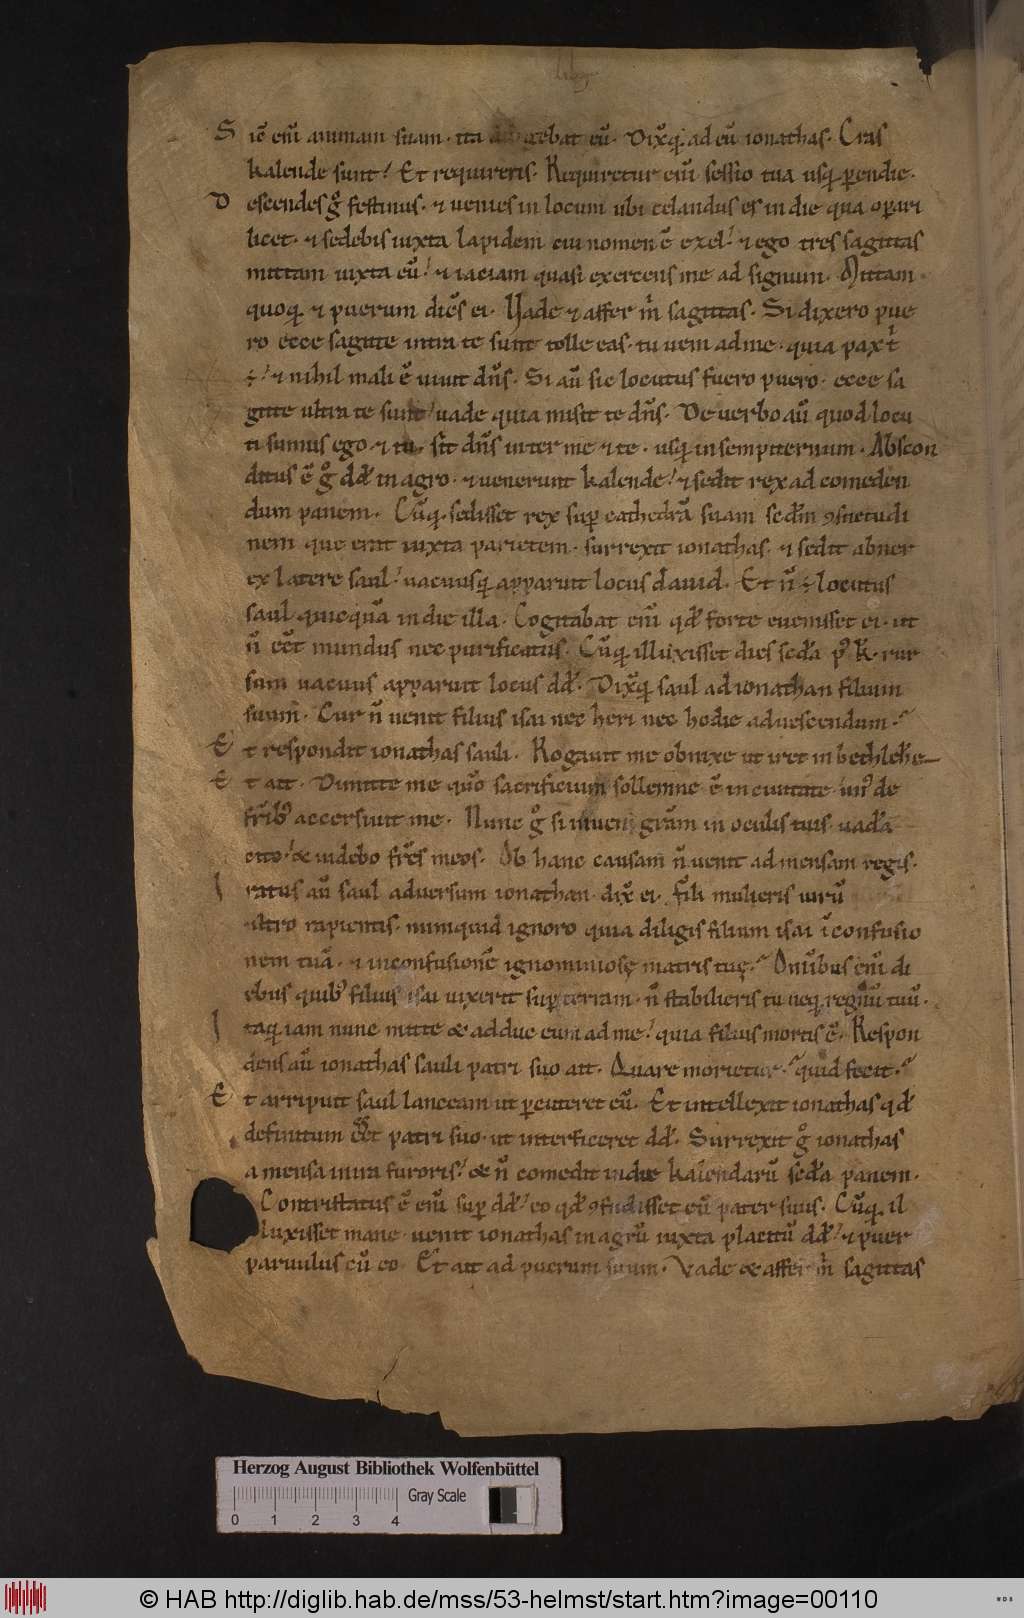 lib
Sic̄ eni̅ animam suam. ita diligebat eu̅. Dixitq; ad eu̅ ionathas. Cras
kalende sunt? Et requireris. Requiretur eni̅ sessio tua usq; perendie.
Descendes g̊ festinus. ⁊ uenies in locum ubi celandus es in die qua op̲ari
licet. ⁊ sedebis iuxta lapidem cui nomen e̅ exel? ⁊ ego tres sagittas
mittam iuxta eu̅? ⁊ iaciam quasi exercens me ad signum. Mittam
quoq; ⁊ puerum dice̅s ei. Uade ⁊ affer m̊ sagittas. Si dixero pue
ro ecce sagitte intra te sunt tolle eas. tu ueni ad me. quia pax t̊
÷? ⁊ nihil mali e̅ uiuit dn̅s. Si au̅ sic locutus fuero puero. ecce sa
gitte ultra te sunt? uade quia misit te dn̅s. De uerbo au̅ quod locu
ti sumus ego ⁊ tu. sit dn̅s inter me ⁊ te. usq; in sempiternum. Abscon
ditus e̅ g̊ dd̅ in agro. ⁊ uenerunt kalende? ⁊ sedit rex ad comeden
dum panem. Cu̅q; sedisset rex sup̲ cathedra̅ suam sed̅m ꝯsuetudi
nem que erat iuxta parietem. surrexit ionathas. ⁊ sedit abner
ex latere saul? uacuusq; apparuit locus dauid. Et n̅ ÷ locutus
saul quicqua̅ in die illa. Cogitabat eni̅ qd̅ forte euenisset ei. ut
n̅ eet̅ mundus nec purificatus. Cu̅q; illuxisset dies sed̅a pꝰ k̅. rur
sum uacuus apparuit locus dd̅. Dixitq; saul ad ionathan filium
suum. Cur n̅ uenit filius isai nec heri nec hodie ad uescendum?
Et respondit ionathas sauli. Rogauit me obnixe ut iret in bethlehe̅
Et ait. Dimitte me quo̅ sacrificium sollemne e̅ in ciuitate. unꝰ de
fr̅ibꝰ accersiuit me. Nunc g̊ si inueni gra̅m in oculis tuis. uada̅
cito? & uidebo fr̅es meos. Ob hanc causam n̅ uenit ad mensam regis.
Iratus au̅ saul aduersum ionathan. dix̅ ei. fili mulieris uiru̅
ultro rapientis. numquid ignoro quia diligis filium isai i̅ confusio
nem tua̅. ⁊ in confusione̅ ignominiosę matris tuę? Omi̅bus eni̅ di
ebus quibꝰ filius isai uixerit sup̲ terram. n̅ stabilieris tu neq; regnu̅ tuu̅.
Itaq; iam nunc mitte & adduc eum ad me? quia filius mortis e̅. Respon
dens au̅ ionathas sauli patri suo ait. Quare morietur? quid fecit?
Et arripuit saul lanceam ut p̲cuteret eu̅. Et intellexit ionathas qd̅
definitum eet̅ patri suo. ut interficeret dd̅. Surrexit g̊ ionathas
a mensa in ira furoris? & n̅ comedit in die kalendaru̅ sed̅a panem.
Contristatus e̅ eni̅ sup̲ dd̅? eo qd̅ ꝯfudisset eu̅ pater suus. Cu̅q; il
luxisset mane. uenit ionathas in agru̅ iuxta placitu̅ dd̅? ⁊ puer
paruulus cu̅ eo. Et ait ad puerum suum. Vade & affer m̊ sagittas
Herzog August Bibliothek Wolfenbüttel
Gray Scale
0 1 2 3 4
© HAB http://diglib.hab.de/mss/53-helmst/start.htm?image=00110